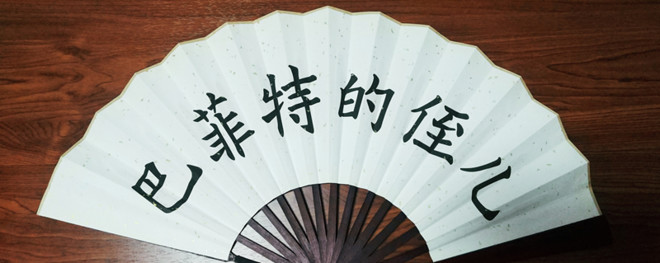 巴菲特的侄儿